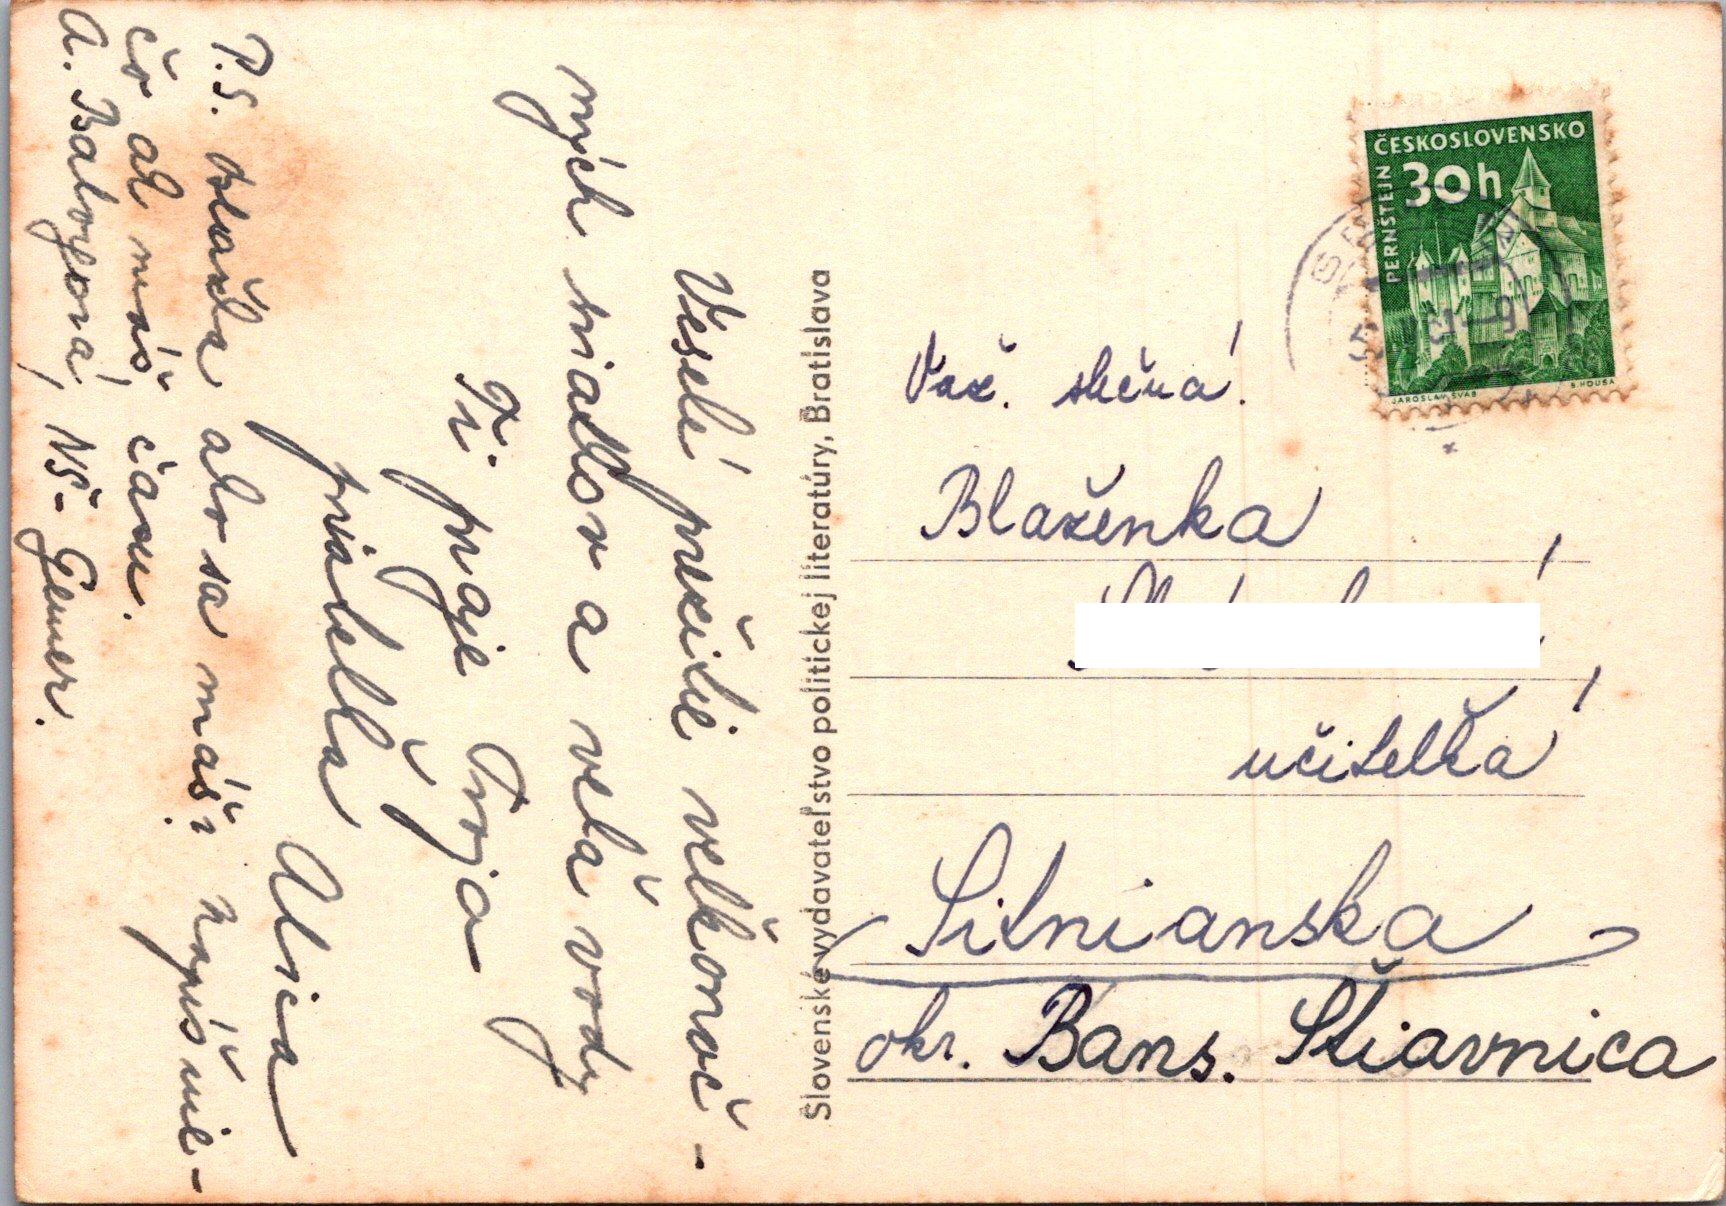 Veselé prežitie veľkonoč-
ných sviatkov a veľa vody
Ti praje Tvoja
priateľka
Alica
P.S. Blažka ako sa máš? Napíš mie-
čo ak máš času.
A. Balogová, NŠ - Gemer.
Slovenské vydavateľstvo politickej literatúry, Bratislava
ČESKOSLOVENSKO
30h
PERNŠTEJN
JAROSLAV ŠVÁB
B. HOUSA
Važ. slečna!
Blaženka
učiteľka
Sitnianska
okr. Bans. Štiavnica